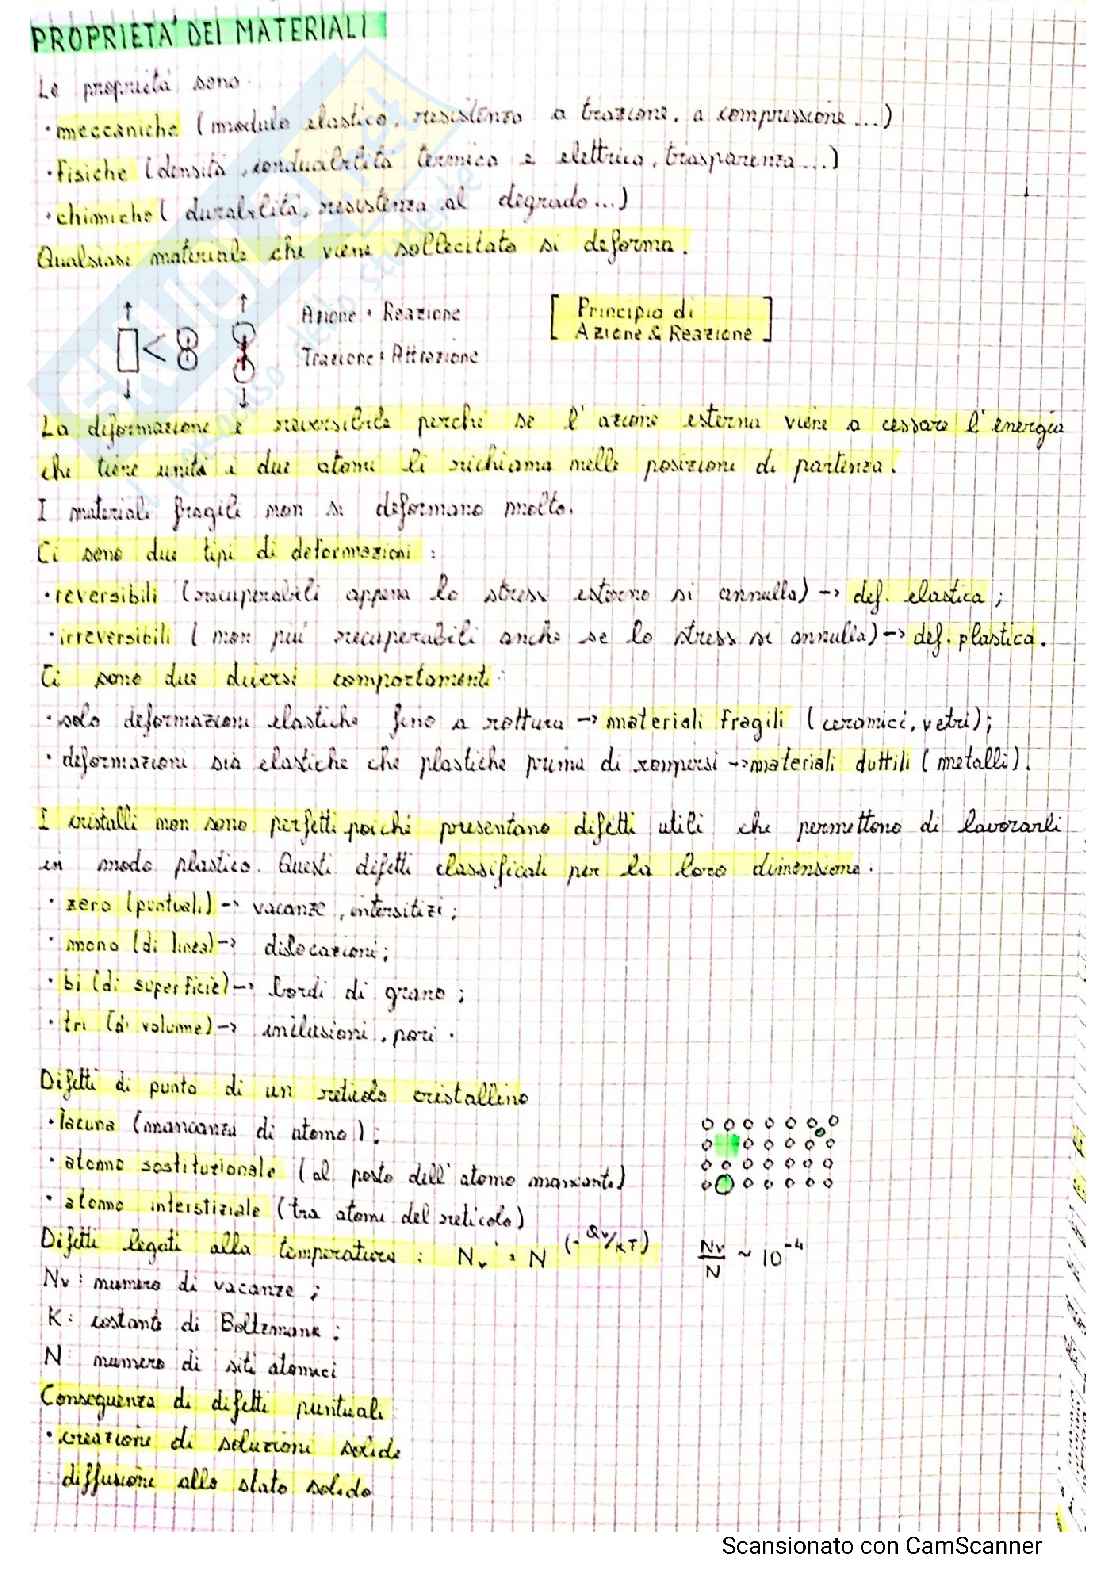 PROPRIETA' DEI MATERIALI
Le proprietà sono
• meccaniche (modulo elastico, resistenza a trazione, a compressione...)
• fisiche (densità, conducibilità termica e elettrica, trasparenza...)
• chimiche (durabilità, resistenza al degrado...)
Qualsiasi materiale che viene sollecitato si deforma.
Azione • Reazione
Trazione • Attrazione
[Principio di
Azione & Reazione]
La deformazione è reversibile perché se l'azione esterna viene a cessare l'energia
che tiene uniti i due atomi li richiama nelle posizioni di partenza.
I materiali fragili non si deformano molto.
Ci sono due tipi di deformazioni:
• reversibili (recuperabili appena lo stress esterno si annulla) → def. elastica;
• irreversibili (non più recuperabili anche se lo stress si annulla) → def. plastica.
Ci sono due diversi comportamenti:
• solo deformazioni elastiche fino a rottura → materiali fragili (ceramici, vetri);
• deformazioni sia elastiche che plastiche prima di rompersi → materiali duttili (metalli).
I cristalli non sono perfetti poiché presentano difetti utili che permettono di lavorarli
in modo plastico. Questi difetti classificati per la loro dimensione.
• zero (puntuali) → vacanze, intersitizi;
• mono (di linea) → dislocazioni;
• bi (di superficie) → bordi di grano;
• tri (di volume) → inclusioni, pori.
Difetti di punto di un reticolo cristallino
• lacuna (mancanza di atomo);
• atomo sostituzionale (al posto dell'atomo mancante)
• atomo interstiziale (tra atomi del reticolo)
Difetti legati alla temperatura: Nv = N (-Qv/KT)
Nv/N ~ 10⁻⁴
Nv: numero di vacanze;
K: costante di Boltzmann;
N numero di siti atomici
Conseguenza di difetti puntuali
• creazione di soluzioni solide
diffusione allo stato solido
Scansionato con CamScanner